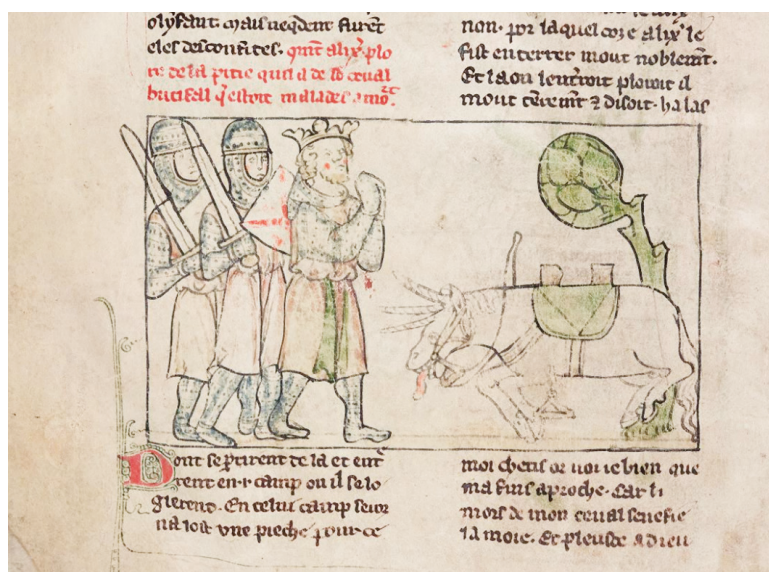 olyfant. mais neqdent furēt
eles desconfites. qm̄t alix̄ plo
re de la pitie quil a de sō ceual
bucifal q̄ estoit malades a mort.
Dont se ptirent de la et entͤ
rent en .i. camp ou il se lo
gierent. En celui camp seior
na lost vne pieche pour ce
non. por laquel coze alix̄ le
fist enterrer mout noblemt.
Et la ou len tͤroit plouroit il
mout tēremt ⁊ disoit. ha las
moi chetis or uoi ie bien que
ma fins aproche. Car li
mors de mon ceual senefie
la moie. Et pleust a dieu